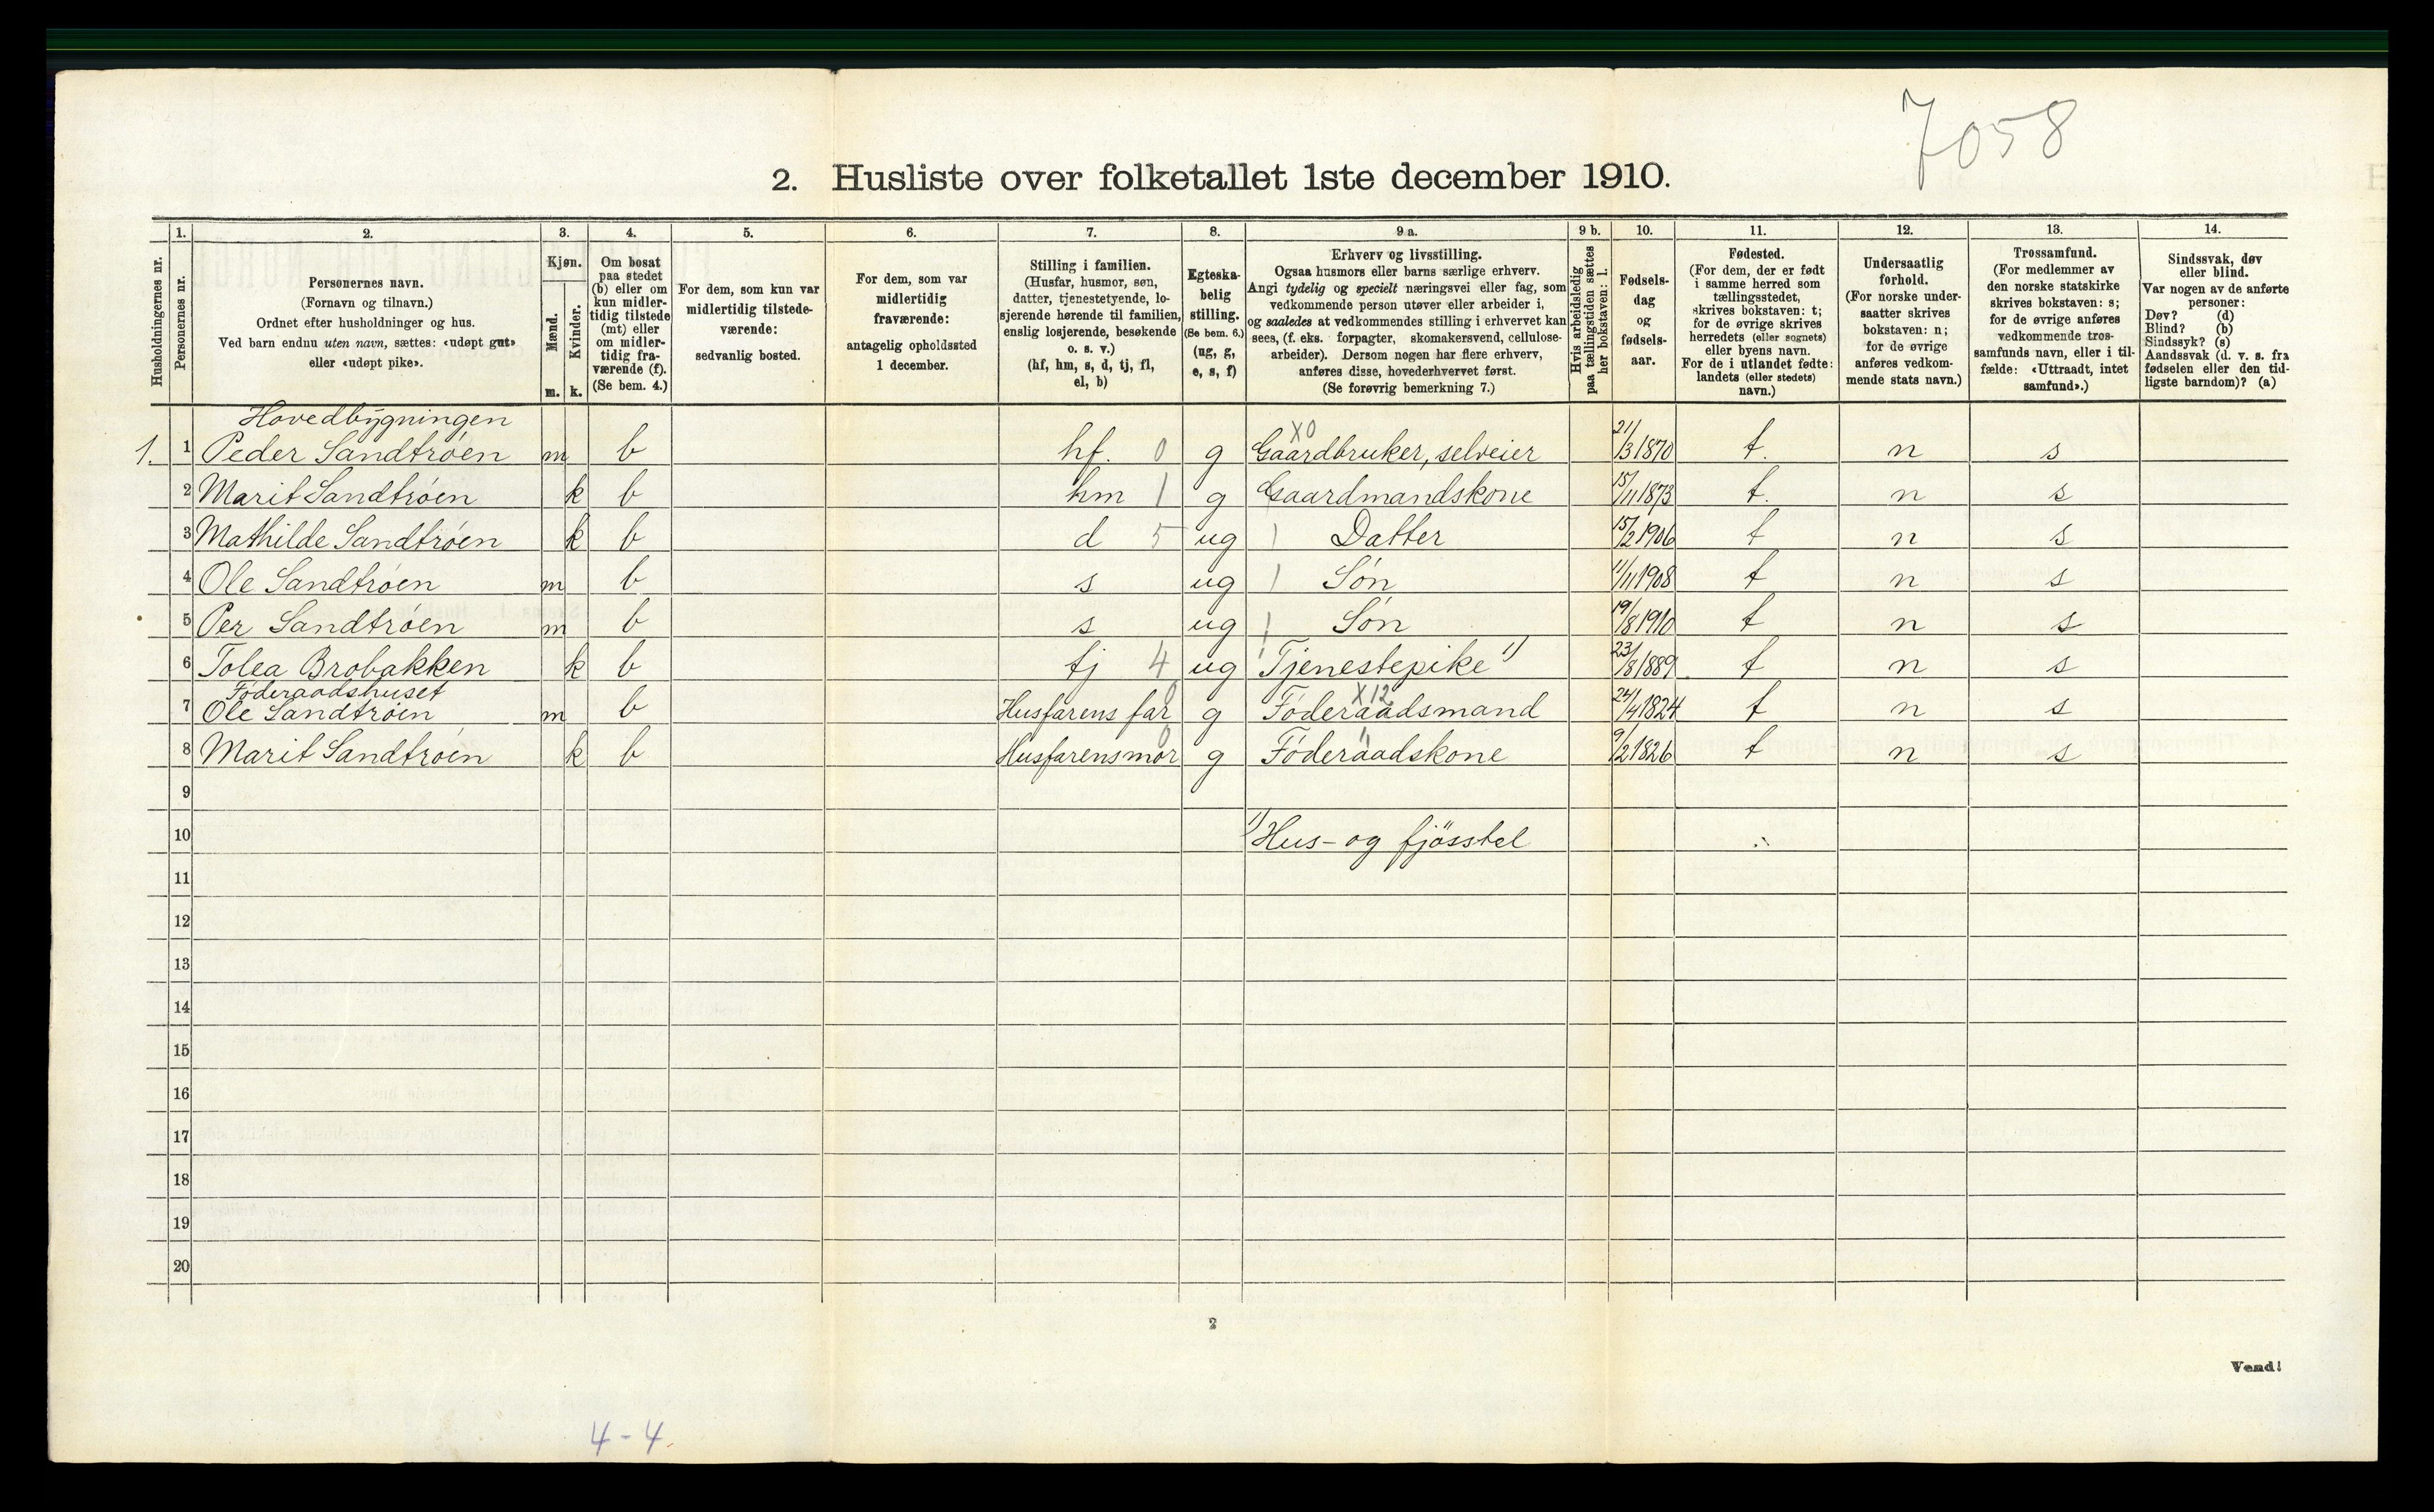 7058
2. Husliste over folketallet 1ste december 1910.
Husholdningernes nr.
1.
Personernes nr.
2.
Personernes navn.
(Fornavn og tilnavn.)
Ordnet efter husholdninger og hus.
Ved barn endnu uten navn, sættes: «udøpt gut»
eller «udøpt pike».
3.
Kjøn.
Mænd.
Kvinder.
m. k.
4.
Om bosat
paa stedet
(b) eller om
kun midler-
tidig tilstede
(mt) eller
om midler-
tidig fra-
værende (f).
(Se bem. 4.)
5.
For dem, som kun var
midlertidig tilstede-
værende:
sedvanlig bosted.
6.
For dem, som var
midlertidig
fraværende:
antagelig opholdssted
1 december.
7.
Stilling i familien.
(Husfar, husmor, søn,
datter, tjenestetyende, lo-
sjerende hørende til familien,
enslig losjerende, besøkende
o. s. v.)
(hf, hm, s, d, tj, fl,
el, b)
8.
Egteska-
belig
stilling.
(Se bem. 6.)
(ug, g,
e, s, f)
9 a.
Erhverv og livsstilling.
Ogsaa husmors eller barns særlige erhverv.
Angi tydelig og specielt næringsvei eller fag, som
vedkommende person utøver eller arbeider i,
og saaledes at vedkommendes stilling i erhvervet kan
sees, (f. eks. forpagter, skomakersvend, cellulose-
arbeider). Dersom nogen har flere erhverv,
anføres disse, hovederhvervet først.
(Se forøvrig bemerkning 7.)
9 b.
Hvis arbeidsledig
paa tællingstiden sættes
her bokstaven: l.
10.
Fødsels-
dag
og
fødsels-
aar.
11.
Fødested.
(For dem, der er født
i samme herred som
tællingsstedet,
skrives bokstaven: t;
for de øvrige skrives
herredets (eller sognets)
eller byens navn.
For de i utlandet fødte:
landets (eller stedets)
navn.)
12.
Undersaatlig
forhold.
(For norske under-
saatter skrives
bokstaven: n;
for de øvrige
anføres vedkom-
mende stats navn.)
13.
Trossamfund.
(For medlemmer av
den norske statskirke
skrives bokstaven: s;
for de øvrige anføres
vedkommende tros-
samfunds navn, eller i til-
fælde: «Uttraadt, intet
samfund».)
14.
Sindssvak, døv
eller blind.
Var nogen av de anførte
personer:
Døv? (d)
Blind? (b)
Sindssyk? (s)
Aandssvak (d. v. s. fra
fødselen eller den tid-
ligste barndom)? (a)
Hovedbygningen
X0
1. 1 Peder Sandtrøen m b hf. 0 g Gaardbruker, selveier 21/3 1870 t. n s
2 Marit Sandtrøen k b hm 1 g Gaardmandskone 15/11 1873 t. n s
3 Mathilde Sandtrøen k b d 5 ug Datter 15/2 1906 t n s
4 Ole Sandtrøen m b s ug Søn 11/11 1908 t n s
5 Per Sandtrøen m b s ug Søn 19/8 1910 t n s
6 Tolea Brobakken k b tj 4 ug Tjenestepike 1) 23/8 1889 t n s
Føderaadshuset
X12
7 Ole Sandtrøen m b Husfarens far 0 g Føderaadsmand 24/4 1824 t n s
8 Marit Sandtrøen k b Husfarens mor 0 g Føderaadskone 9/2 1826 t n s
9
10 1) Hus- og fjösstel
11
12
13
14
15
16
17
18
19
20
2
Vend!
4-4